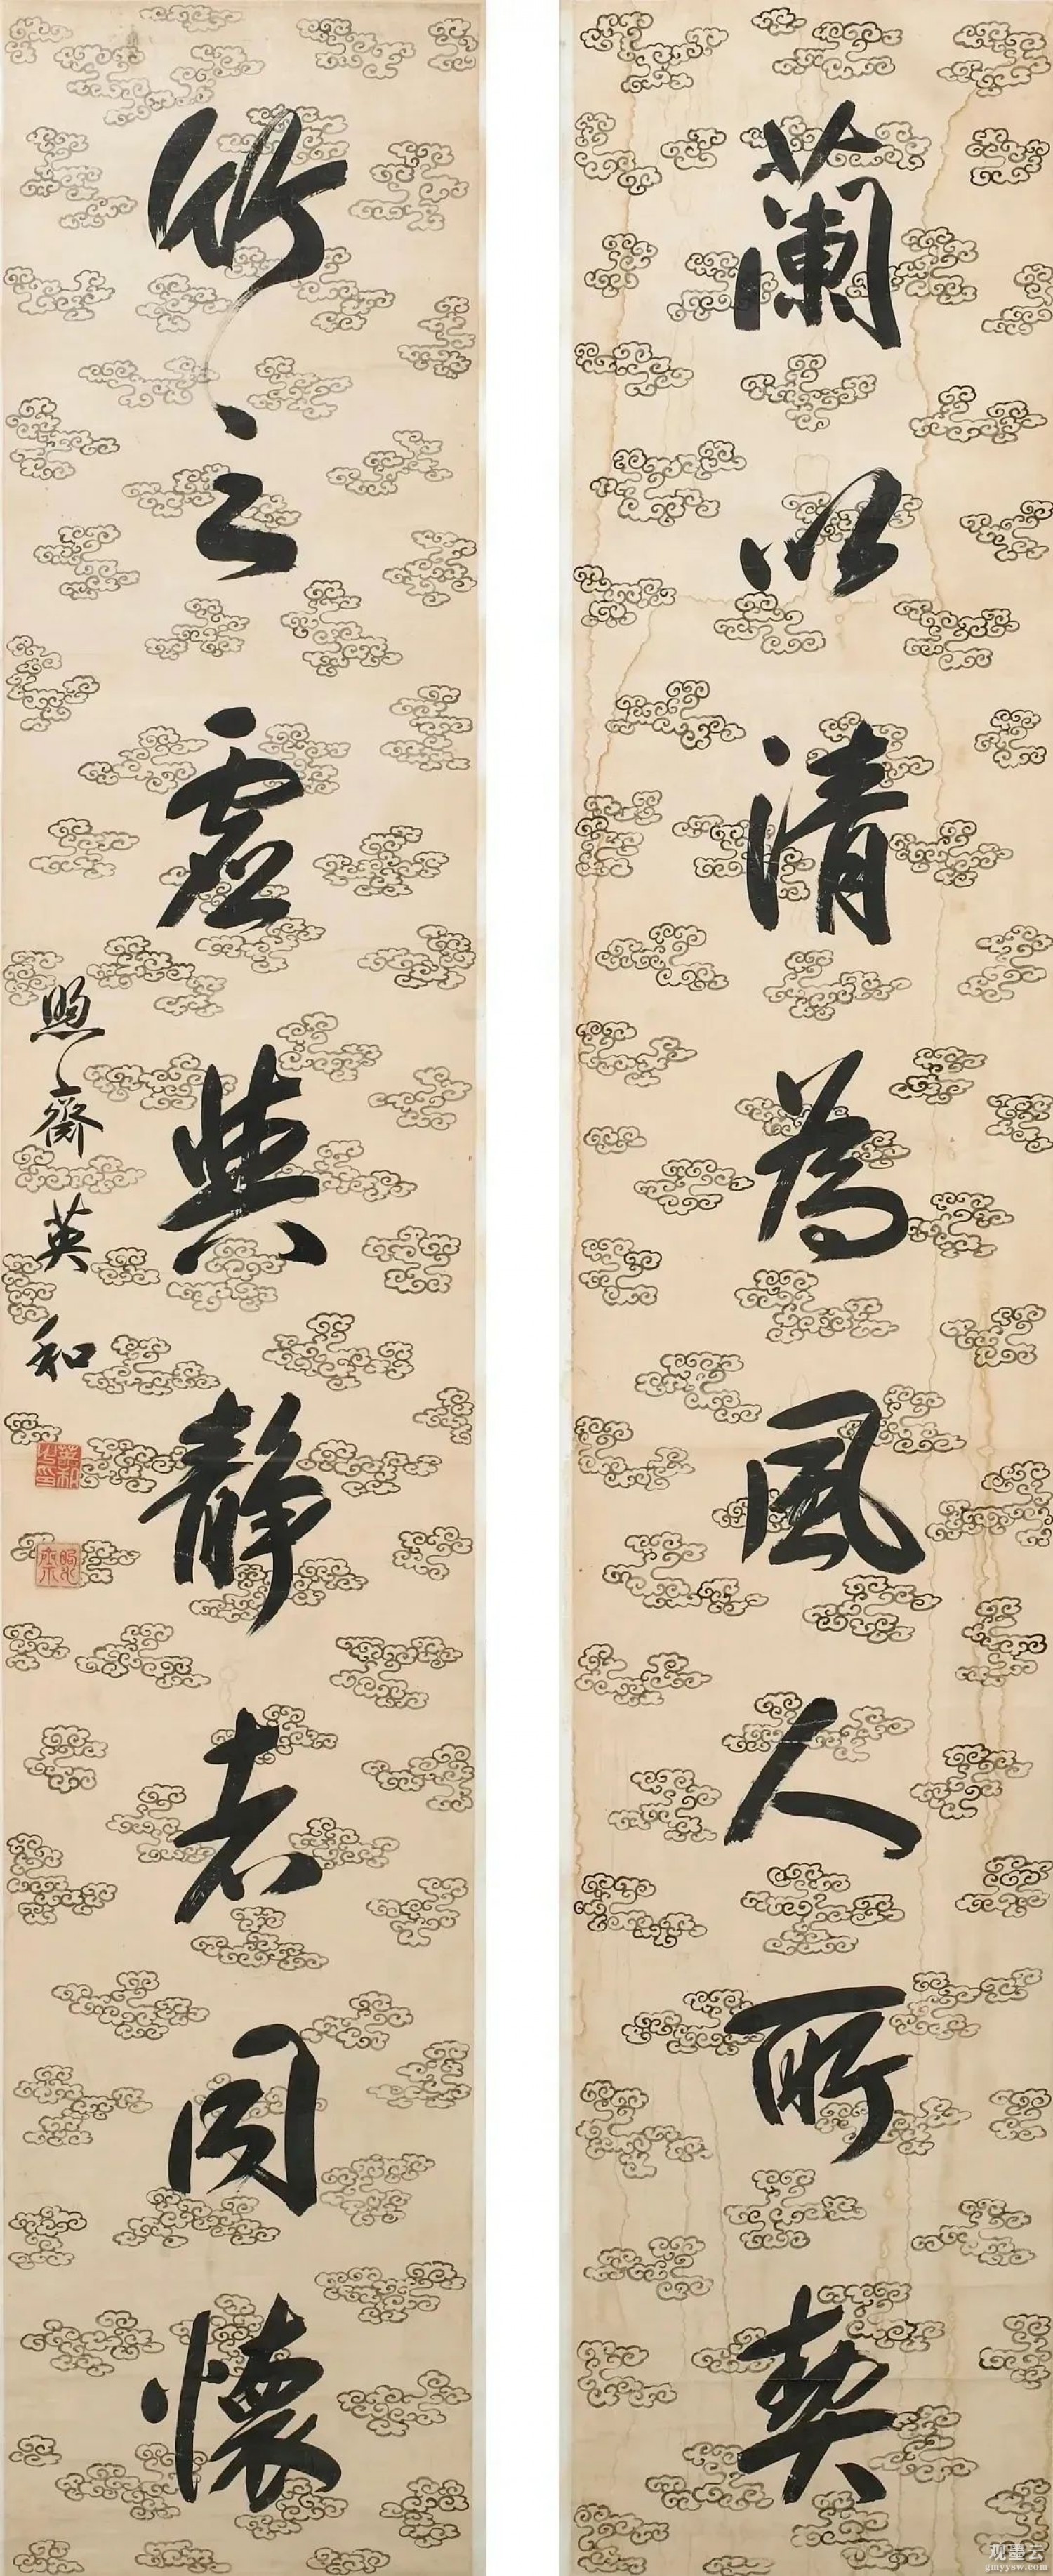 蘭以清為風人所契
竹之虛與靜者同懷
煦齋英和
英和之印
煦齋
观墨云
gmyysw.com